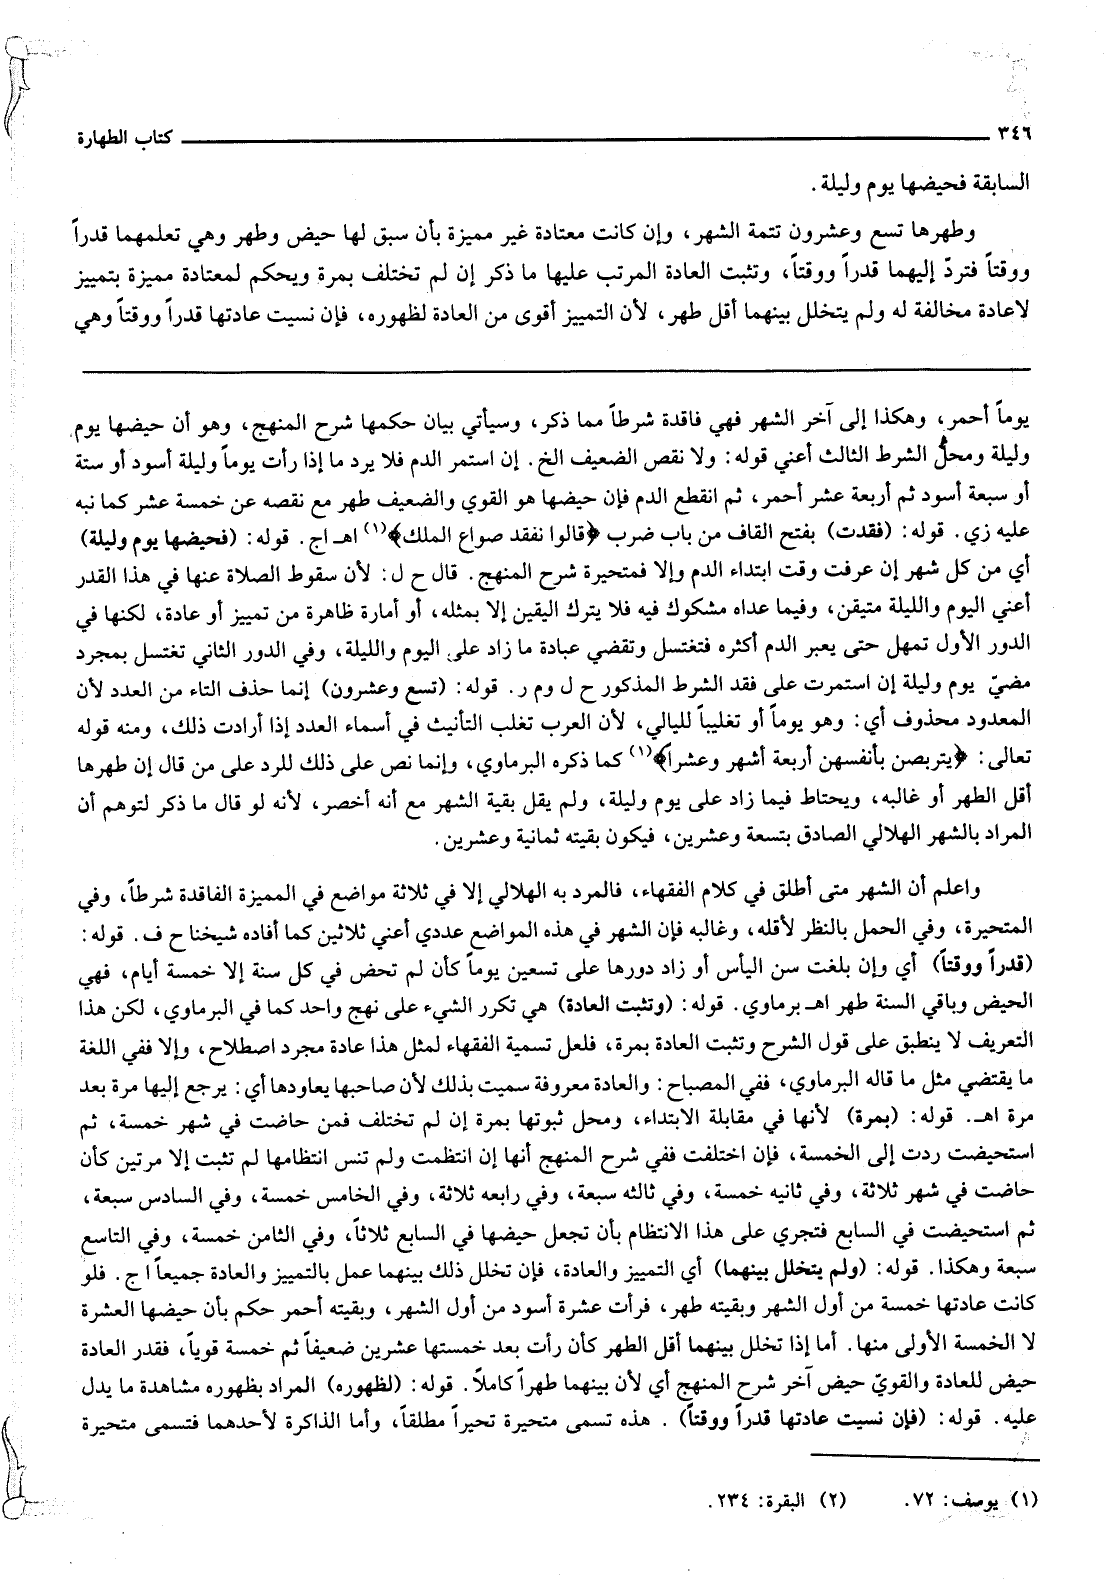 ٣٤٦ كتاب الطهارة
السابقة فحيضها يوم وليلة.
وطهرها تسع وعشرون تتمة الشهر، وإن كانت معتادة غير مميزة بأن سبق لها حيض وطهر وهي تعلمهما قدراً
ووقتاً فتردّ إليهما قدراً ووقتاً، وتثبت العادة المرتب عليها ما ذكر إن لم تختلف بمرة ويحكم لمعتادة مميزة بتمييز
لاعادة مخالفة له ولم يتخلل بينهما أقل طهر، لأن التمييز أقوى من العادة لظهوره، فإن نسيت عادتها قدراً ووقتاً وهي
يوماً أحمر، وهكذا إلى آخر الشهر فهي فاقدة شرطاً مما ذكر، وسيأتي بيان حكمها شرح المنهج، وهو أن حيضها يوم
وليلة ومحلّ الشرط الثالث أعني قوله: ولا نقص الضعيف الخ. إن استمر الدم فلا يرد ما إذا رأت يوماً وليلة أسود أو ستة
أو سبعة أسود ثم أربعة عشر أحمر، ثم انقطع الدم فإن حيضها هو القوي والضعيف طهر مع نقصه عن خمسة عشر كما نبه
عليه زي. قوله: (فقدت) بفتح القاف من باب ضرب ﴿قالوا نفقد صواع الملك﴾(١) اهـ اج. قوله: (فحيضها يوم وليلة)
أي من كل شهر إن عرفت وقت ابتداء الدم وإلا فمتحيرة شرح المنهج. قال ح ل: لأن سقوط الصلاة عنها في هذا القدر
أعني اليوم والليلة متيقن، وفيما عداه مشكوك فيه فلا يترك اليقين إلا بمثله، أو أمارة ظاهرة من تمييز أو عادة، لكنها في
الدور الأول تمهل حتى يعبر الدم أكثره فتغتسل وتقضي عبادة ما زاد على اليوم والليلة، وفي الدور الثاني تغتسل بمجرد
مضيّ يوم وليلة إن استمرت على فقد الشرط المذكور ح ل وم ر. قوله: (تسع وعشرون) إنما حذف التاء من العدد لأن
المعدود محذوف أي: وهو يوماً أو تغليباً لليالي، لأن العرب تغلب التأنيث في أسماء العدد إذا أرادت ذلك، ومنه قوله
تعالى: ﴿يتربصن بأنفسهن أربعة أشهر وعشراً﴾(١) كما ذكره البرماوي، وإنما نص على ذلك للرد على من قال إن طهرها
أقل الطهر أو غالبه، ويحتاط فيما زاد على يوم وليلة، ولم يقل بقية الشهر مع أنه أخصر، لأنه لو قال ما ذكر لتوهم أن
المراد بالشهر الهلالي الصادق بتسعة وعشرين، فيكون بقيته ثمانية وعشرين.
واعلم أن الشهر متى أطلق في كلام الفقهاء، فالمرد به الهلالي إلا في ثلاثة مواضع في المميزة الفاقدة شرطاً، وفي
المتحيرة، وفي الحمل بالنظر لأقله، وغالبه فإن الشهر في هذه المواضع عددي أعني ثلاثين كما أفاده شيخنا ح ف. قوله:
(قدراً ووقتاً) أي وإن بلغت سن اليأس أو زاد دورها على تسعين يوماً كأن لم تحض في كل سنة إلا خمسة أيام، فهي
الحيض وباقي السنة طهر اهـ برماوي. قوله: (وتثبت العادة) هي تكرر الشيء على نهج واحد كما في البرماوي، لكن هذا
التعريف لا ينطبق على قول الشرح وتثبت العادة بمرة، فلعل تسمية الفقهاء لمثل هذا عادة مجرد اصطلاح، وإلا ففي اللغة
ما يقتضي مثل ما قاله البرماوي، ففي المصباح: والعادة معروفة سميت بذلك لأن صاحبها يعاودها أي: يرجع إليها مرة بعد
مرة اهـ. قوله: (بمرة) لأنها في مقابلة الابتداء، ومحل ثبوتها بمرة إن لم تختلف فمن حاضت في شهر خمسة، ثم
استحيضت ردت إلى الخمسة، فإن اختلفت ففي شرح المنهج أنها إن انتظمت ولم تنس انتظامها لم تثبت إلا مرتين كأن
حاضت في شهر ثلاثة، وفي ثانيه خمسة، وفي ثالثه سبعة، وفي رابعه ثلاثة، وفي الخامس خمسة، وفي السادس سبعة،
ثم استحيضت في السابع فتجري على هذا الانتظام بأن تجعل حيضها في السابع ثلاثاً، وفي الثامن خمسة، وفي التاسع
سبعة وهكذا. قوله: (ولم يتخلل بينهما) أي التمييز والعادة، فإن تخلل ذلك بينهما عمل بالتمييز والعادة جميعاً ا ج. فلو
كانت عادتها خمسة من أول الشهر وبقيته طهر، فرأت عشرة أسود من أول الشهر، وبقيته أحمر حكم بأن حيضها العشرة
لا الخمسة الأولى منها. أما إذا تخلل بينهما أقل الطهر كأن رأت بعد خمستها عشرين ضعيفاً ثم خمسة قوياً، فقدر العادة
حيض للعادة والقويّ حيض آخر شرح المنهج أي لأن بينهما طهراً كاملاً. قوله: (لظهوره) المراد بظهوره مشاهدة ما يدل
عليه. قوله: (فإن نسيت عادتها قدراً ووقتاً). هذه تسمى متحيرة تحيراً مطلقاً، وأما الذاكرة لأحدهما فتسمى متحيرة
(١) يوسف: ٧٢. (٢) البقرة: ٢٣٤.